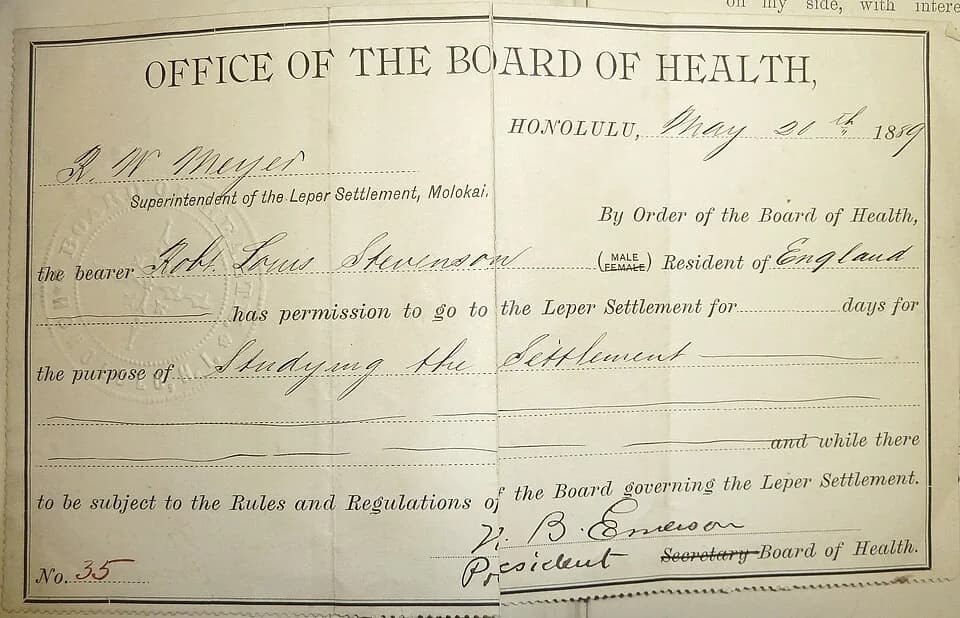 on my side, with intere
OFFICE OF THE BOARD OF HEALTH,
HONOLULU, May 20th 1889
R. W Meyer
Superintendent of the Leper Settlement, Molokai.
By Order of the Board of Health,
the bearer Robt Louis Stevenson (MALE FEMALE) Resident of England
has permission to go to the Leper Settlement for days for
the purpose of Studying the Settlement
and while there
to be subject to the Rules and Regulations of the Board governing the Leper Settlement.
N. B. Emerson
President Secretary Board of Health.
No. 35